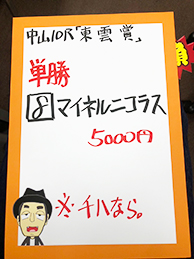 中山10R「東雲賞」
単勝
8 マイネルニコラス
5000円
※千八なら。